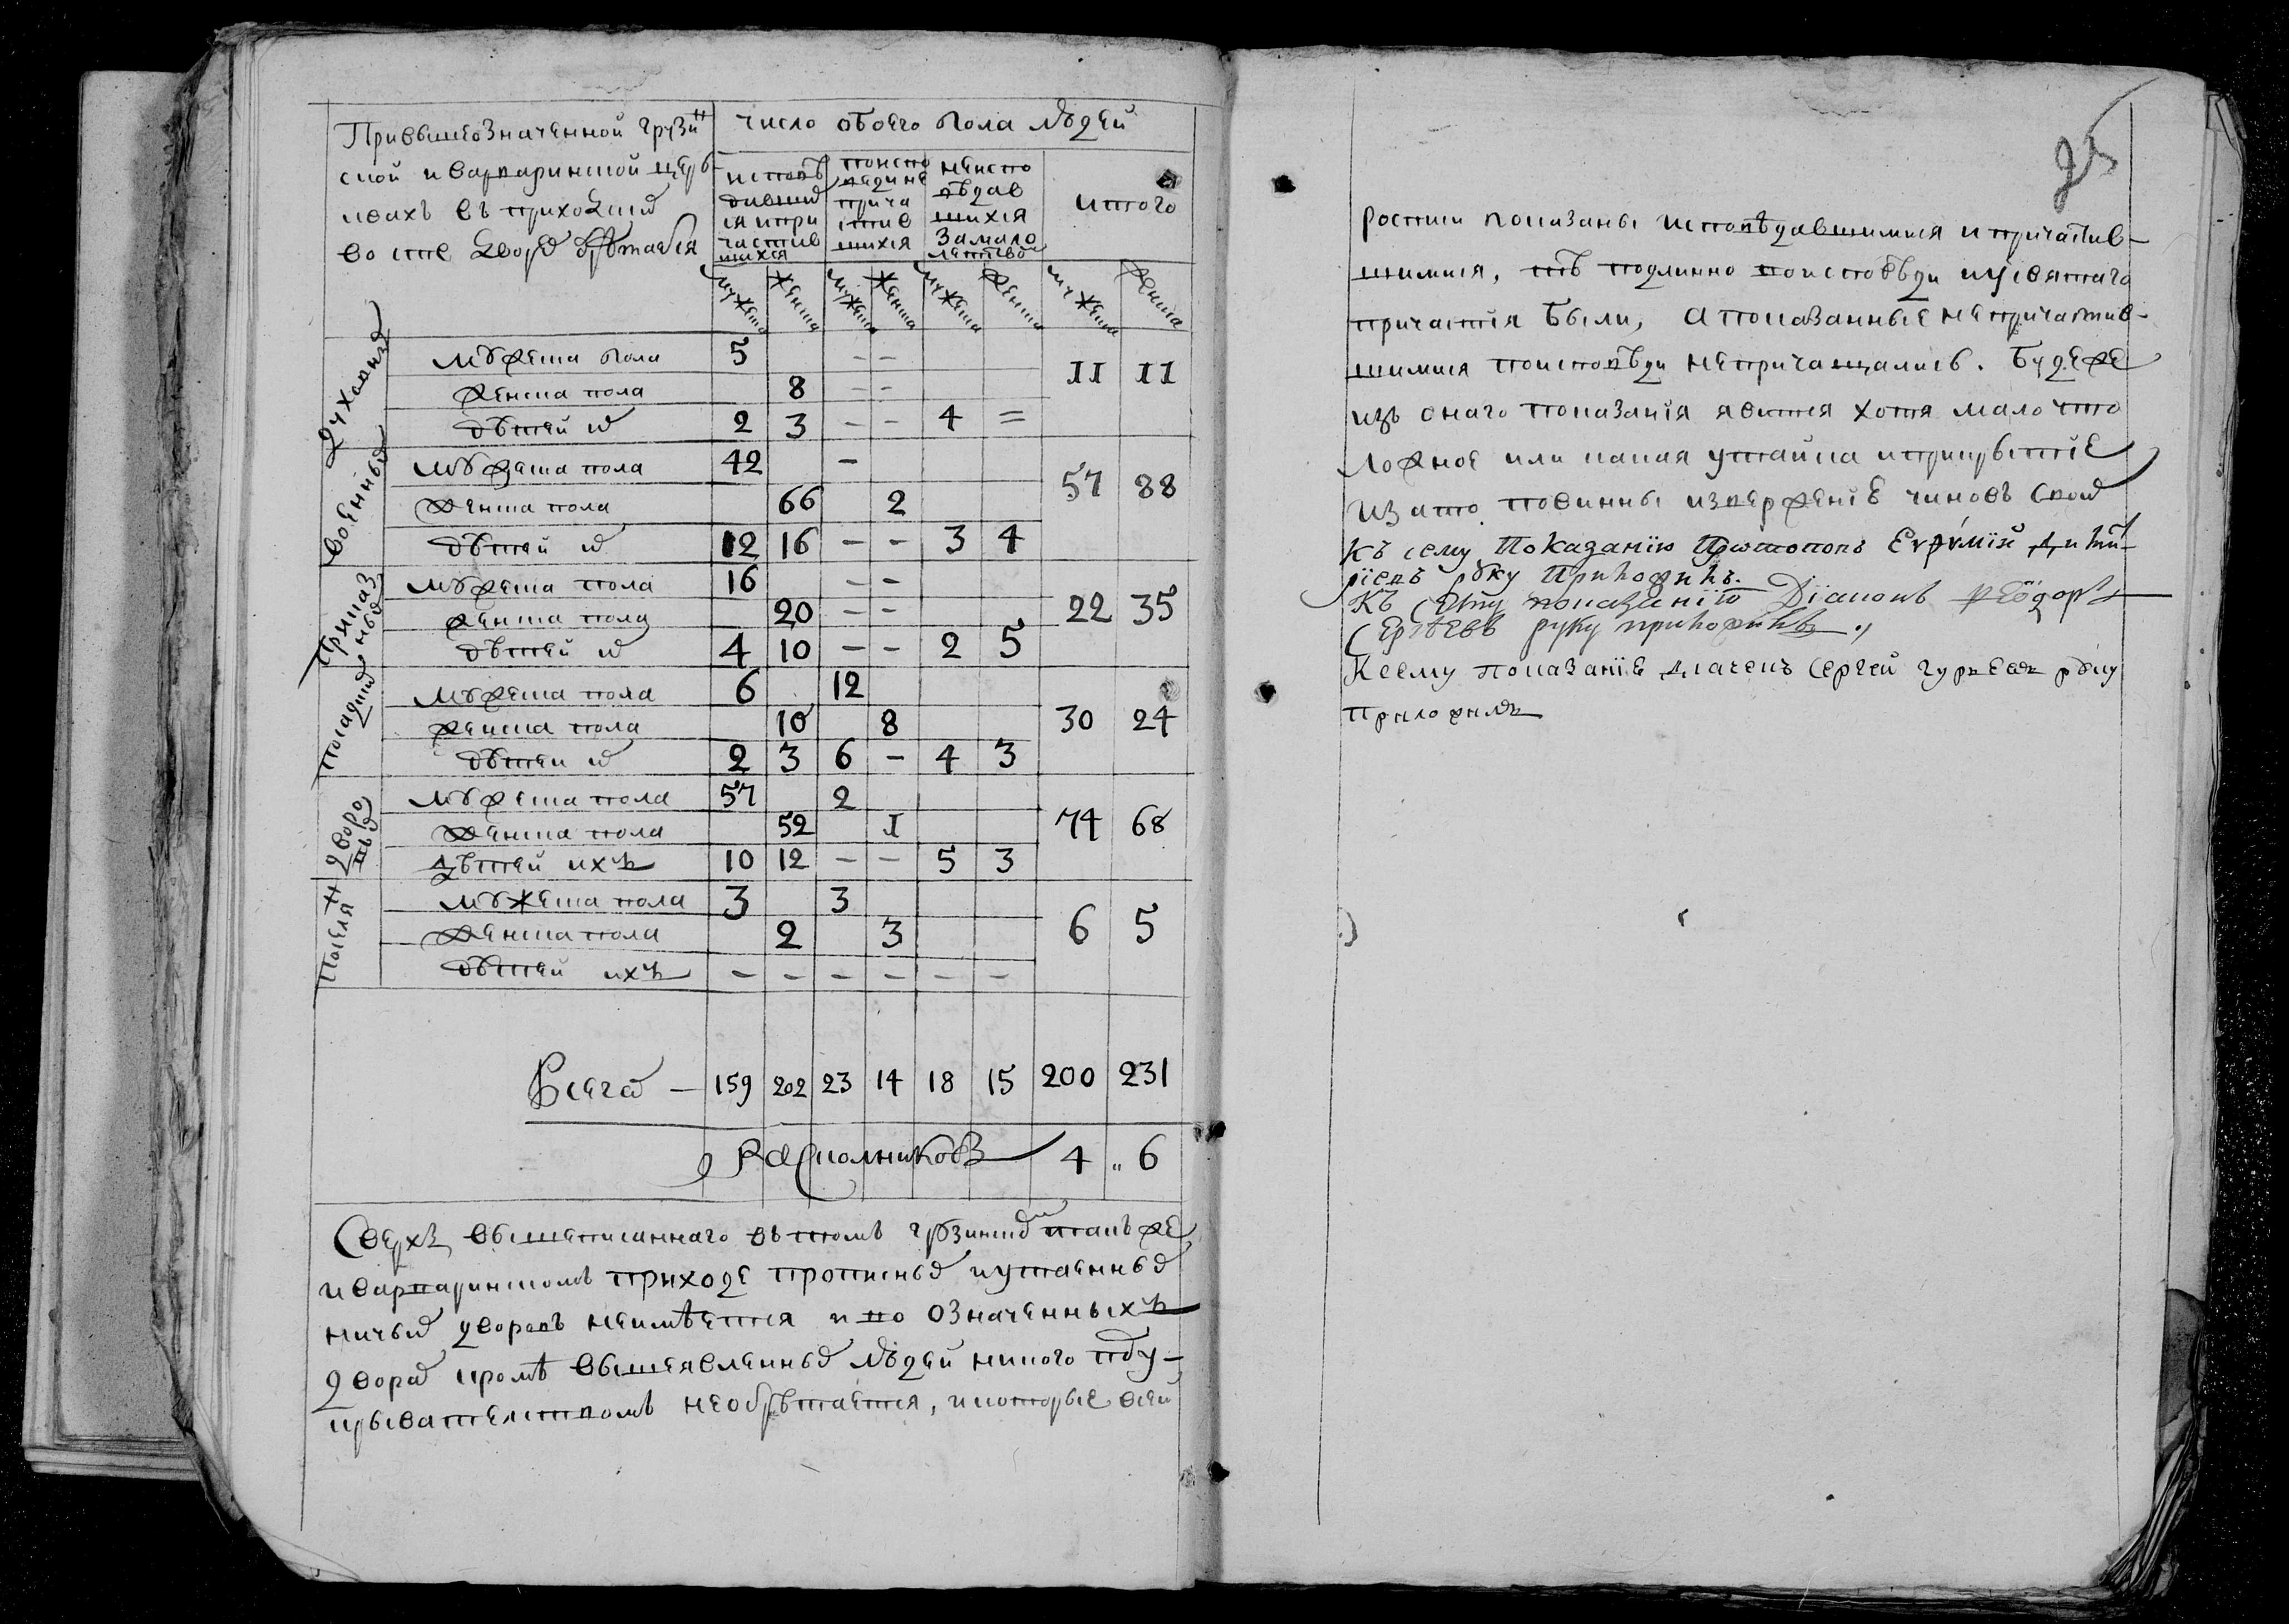 При вышеозначенной грузин
ской и варваринской церь
квахъ въ приходских
во сте дворах обретается
число обоего пола людей
исповѣ
давших
ся и при
частив
шихся
по испо
веди не
прича
стив
шихся
не испо
вѣдав
шихся
за мало
летство
итого
мужеска женска мужеска женска мужеска женска мужеска женска
Духовных
мужеска пола 5 - - 11 11
женска пола 8 - -
дѣтей их 2 3 - - 4 =
военных
мужеска пола 42 - 57 88
женска пола 66 2
дѣтей их 12 16 - - 3 4
приказ
ных
мужеска пола 16 - - 22 35
женска пола 20 - -
дѣтей их 4 10 - - 2 5
посадских
мужеска пола 6 12 30 24
женска пола 10 8
дѣтей их 2 3 6 - 4 3
дворо
вых
мужеска пола 57 2 74 68
женска пола 52 1
дѣтей ихъ 10 12 - - 5 3
поселян
мужеска пола 3 3 6 5
женска пола 2 3
дѣтей ихъ - - - - - -
Всего - 159 202 23 14 18 15 200 231
Раскольниковъ 4 " 6
Сверхъ вышеписаннаго въ томъ грузинском такъ же
и варваринскомъ приходе прописных и утаенных
ничьих дворовъ не имѣется и во означенныхъ
дворах кромѣ вышеявленных людей никого под у-
крывателствомъ не обрѣтается, и которые в сей
25
росписи показаны исповѣдавшимися и причастив-
шимися, тѣ подлинно по исповѣди и у святаго
причастия были, а показанные не причастив-
шимися по исповѣди не причащались. Буде же
изъ онаго показанія явится хотя мало что
ложное или какая утайка и прикрытіе
и за то повинны извержение чиновъ своих
Къ сему показанию протопопъ Евфимій Дмит-
ріевъ руку приложилъ.
Къ сему показанию Діаконъ Ѳеодоръ
Сергѣевъ руку приложилъ.
К сему показание дьячекъ Сергей Гурьевъ руку
приложилъ